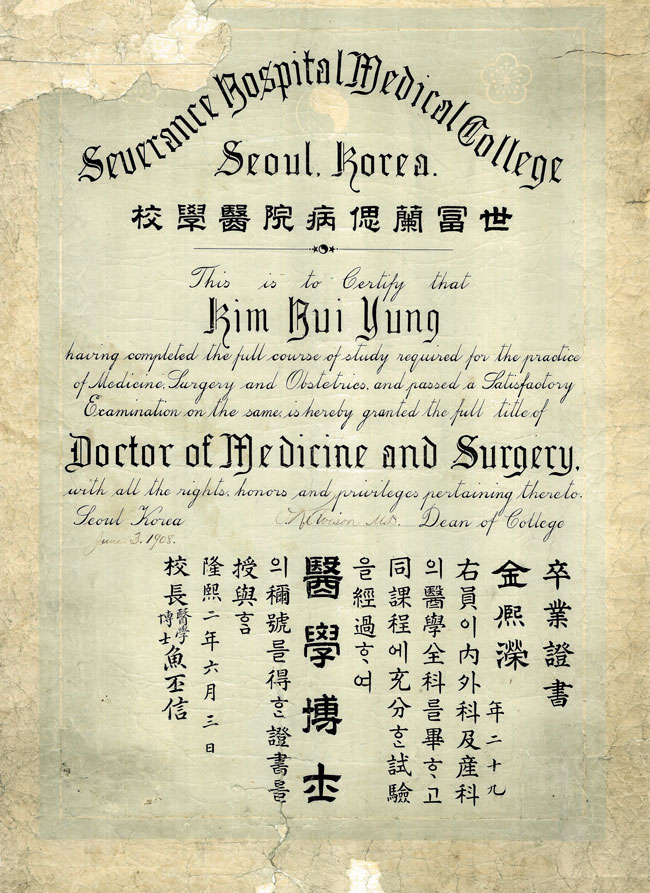 Severance Hospital Medical College
Seoul, Korea.
世富蘭偲病院醫學校
This is to Certify that
Kim Hui Yung
having completed the full course of study required for the practice
of Medicine, Surgery and Obstetrics, and passed a Satisfactory
Examination on the same, is hereby granted the full title of
Doctor of Medicine and Surgery,
with all the rights, honors and privileges pertaining thereto.
Seoul Korea O. R. Avison M.D. Dean of College
June 3. 1908.
卒業證書
金熙濚 年二十九
右員이內外科及産科
의醫學全科를畢ᄒᆞ고
同課程에充分ᄒᆞᆫ試驗
을經過ᄒᆞ여
醫學博士
의稱號를得ᄒᆞᆫ證書를
授與홈
隆熙二年六月三日
校長醫學博士魚丕信